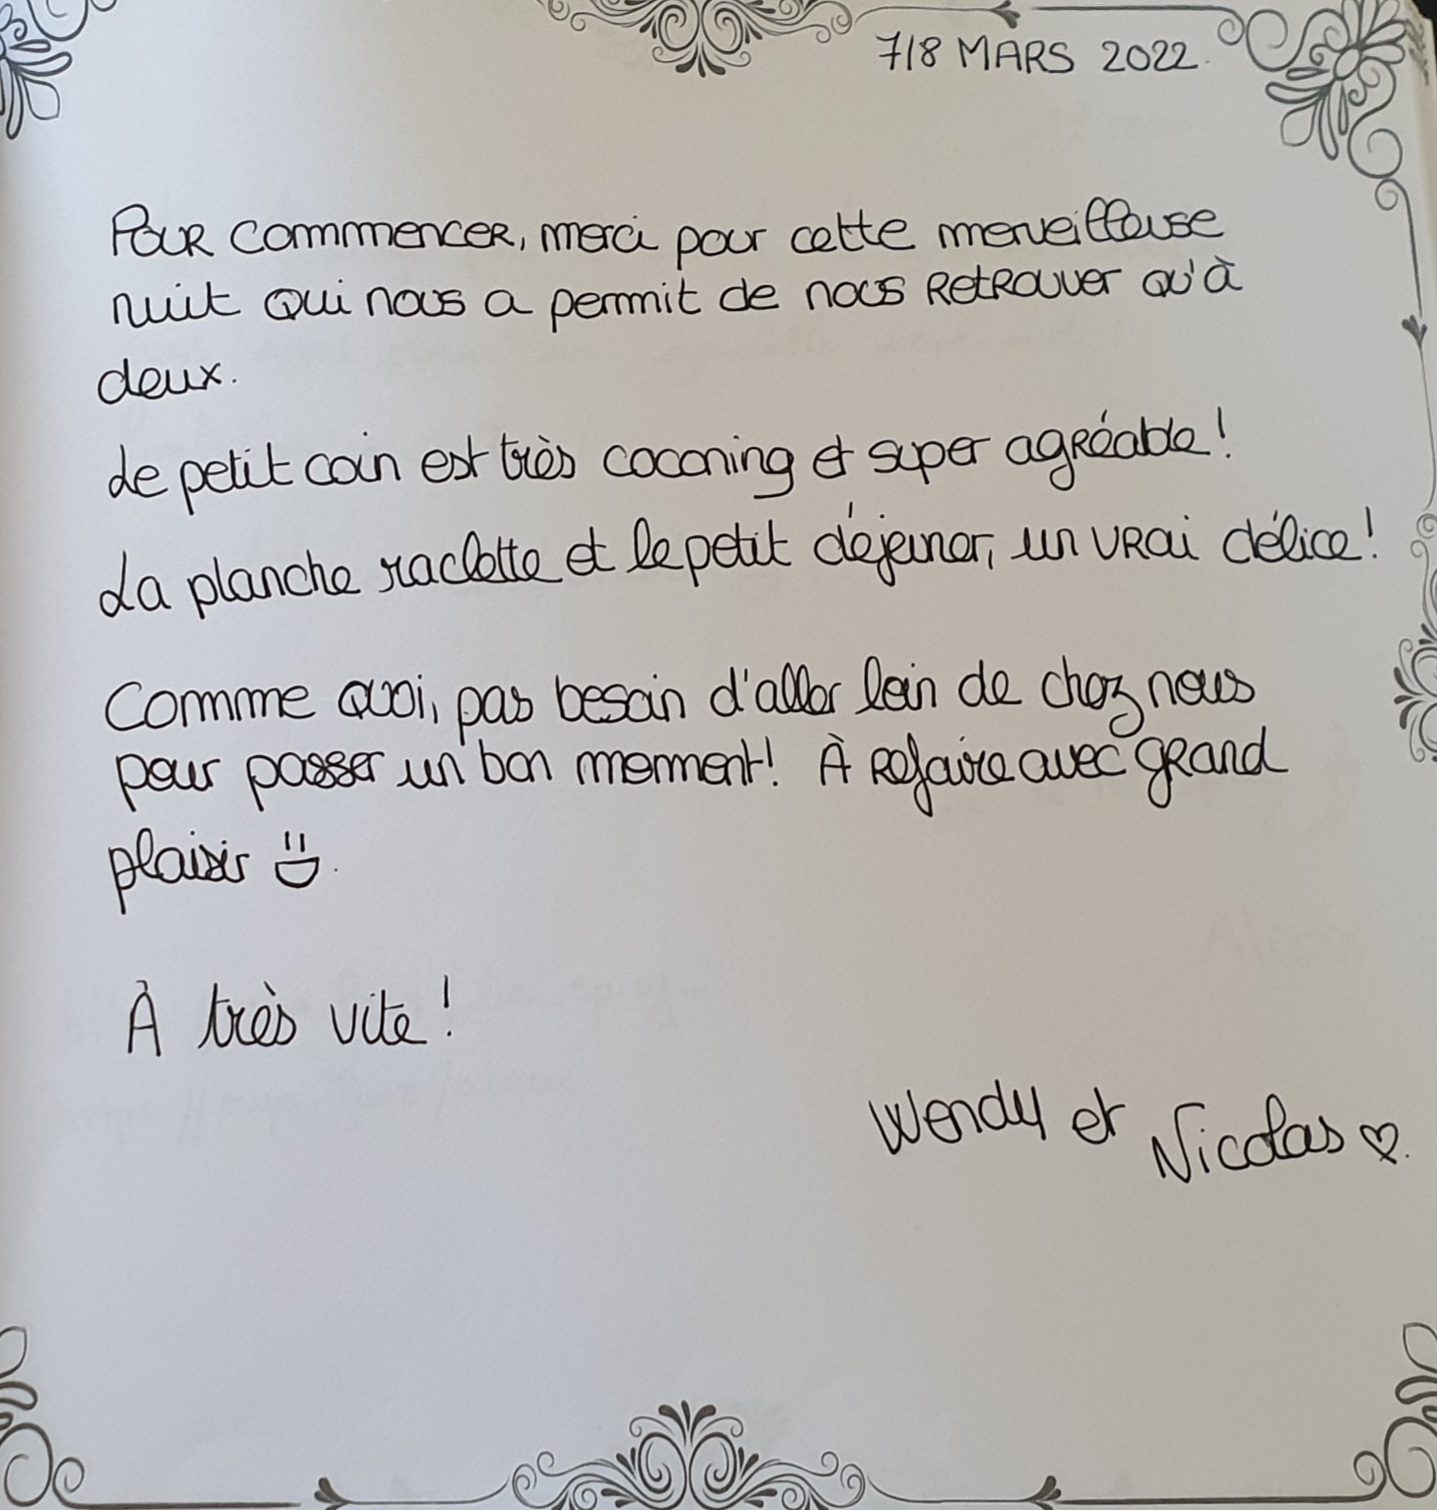 7/8 MARS 2022.
Pour commencer, merci pour cette merveilleuse
nuit qui nous a permit de nous retrouver qu'à
deux.
Le petit coin est très coconing et super agréable !
La planche raclette et le petit déjeuner, un vrai délice !
Comme quoi, pas besoin d'aller loin de chez nous
pour passer un bon momment ! À refaire avec grand
plaisir
À très vite !
Wendy et Nicolas ♡.